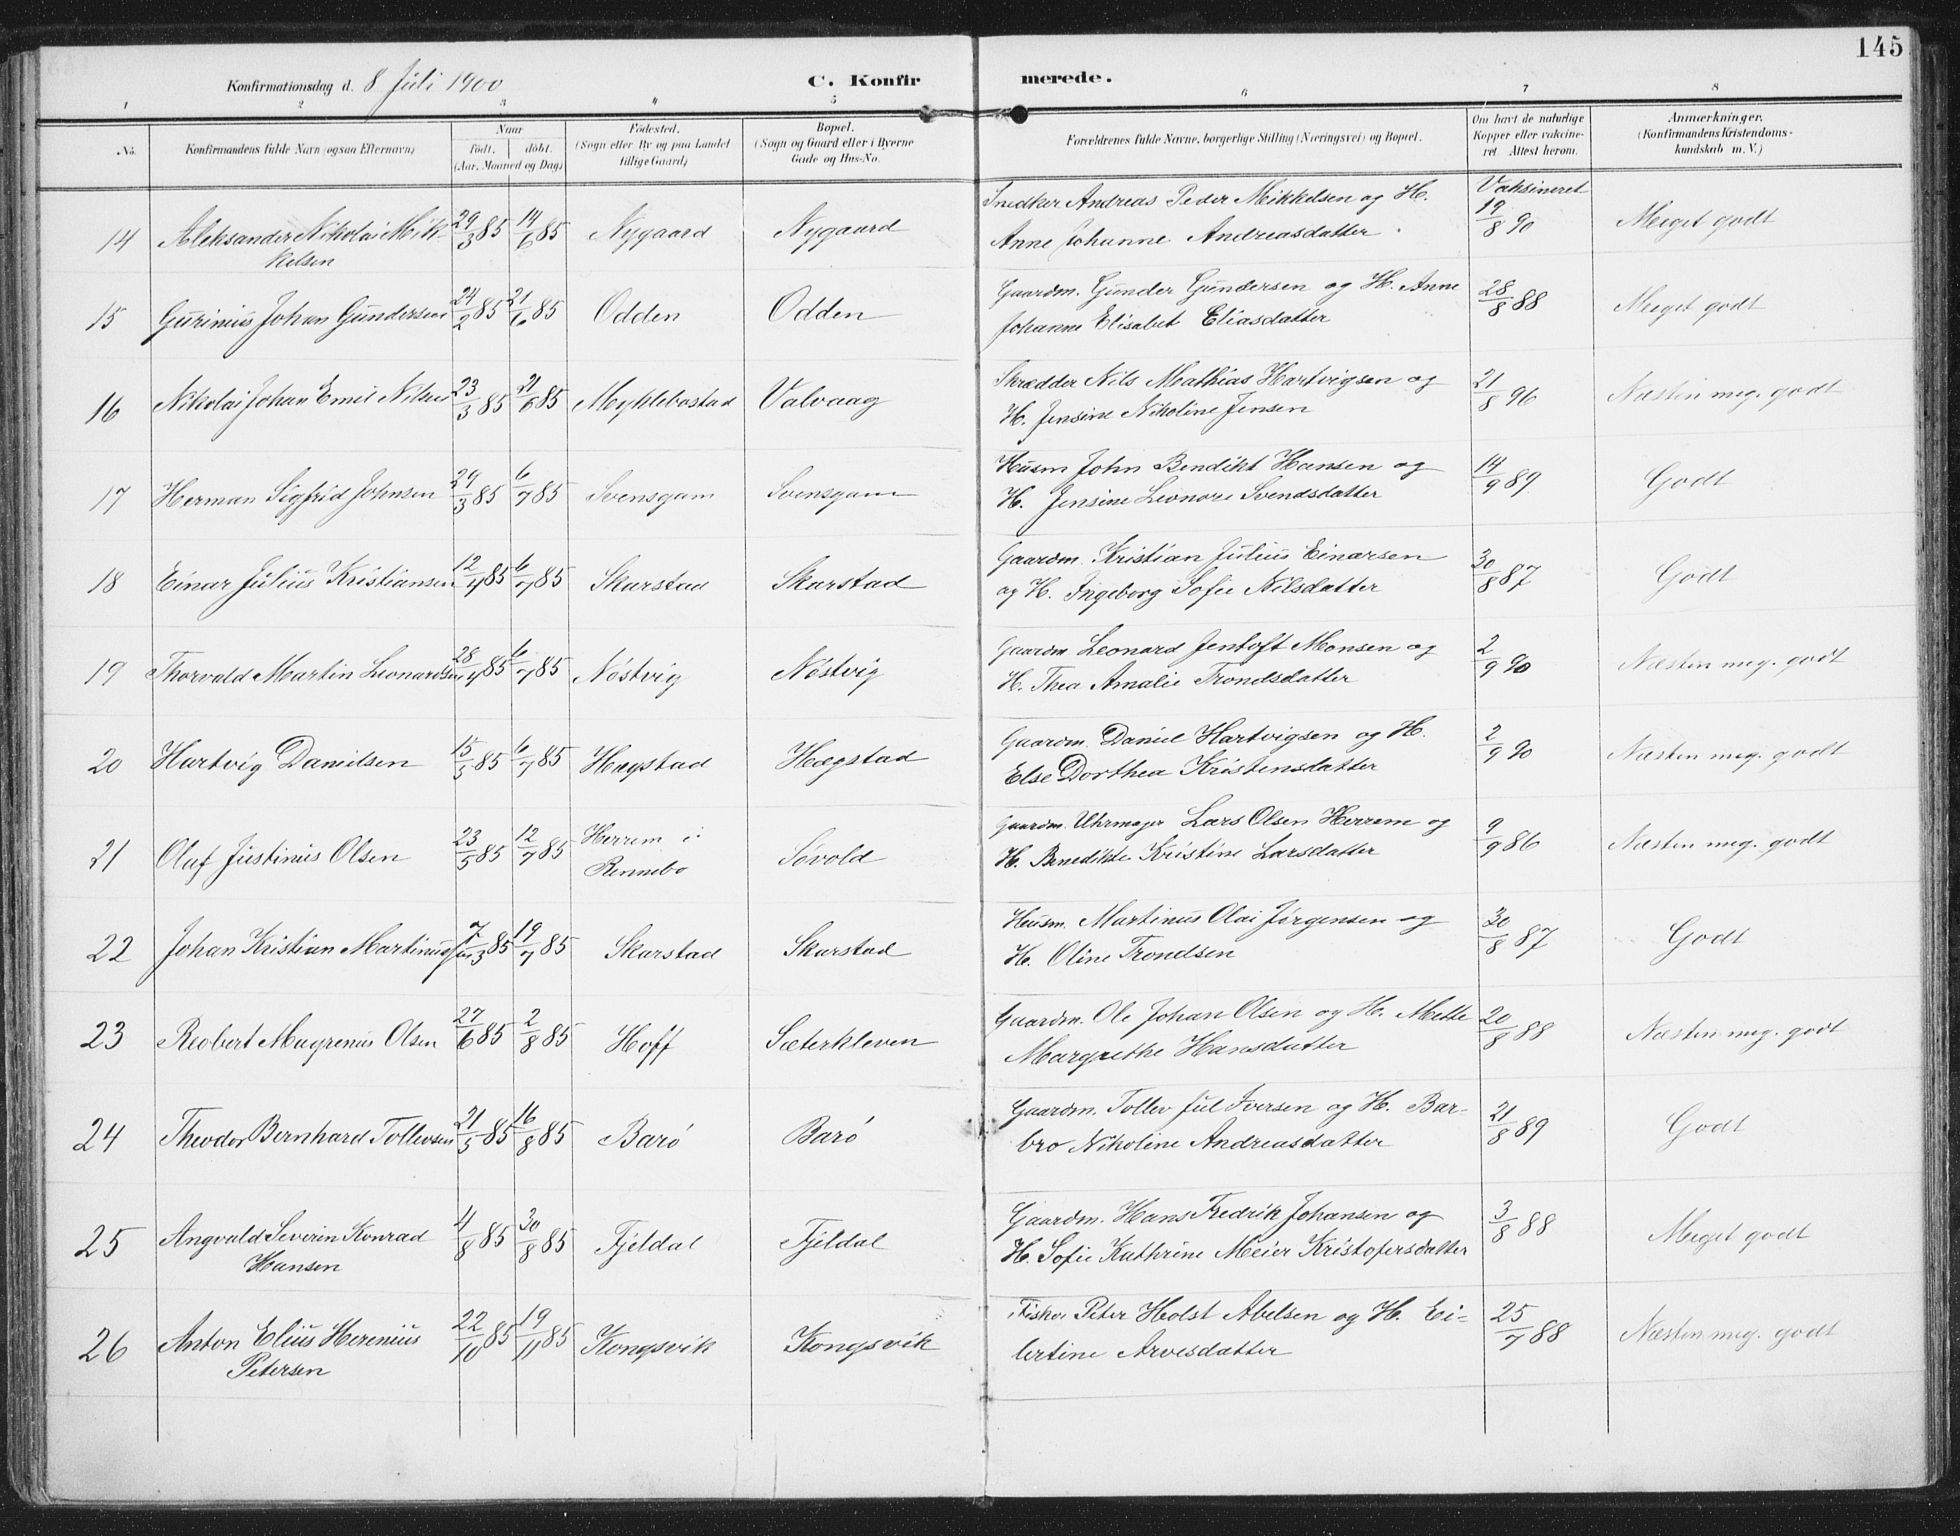 145
Konfirmationsdag d. 8 Juli 1900 C. Konfirmerede.
1 2 3 4 5 6 7 8
No. Konfirmandens fulde Navn (ogsaa Efternavn) Naar født. døbt. (Aar, Maaned og Dag) Fødested. (Sogn eller By og paa Landet tillige Gaard) Bopæl. (Sogn og Gaard eller i Byerne Gade og Hus-No. Forældrenes fulde Navne, borgerlige Stilling (Næringsvei) og Bopæl. Om havt de naturlige Kopper eller vakcineret. Attest herom. Anmærkninger. (Konfirmandens Kristendomskundskab m. V.)
14 Aleksander Nikolai Mikkelsen 29/3 85 14/6 85 Nygaard Nygaard Snedker Andreas Peder Mikkelsen og H. Anne Johanne Andreasdatter Vaksineret 19/8 90 Meget godt
15 Gurinius Johan Gundersen 24/2 85 21/6 85 Odden Odden Gaardm. Gunder Gundersen og H. Anne Johanne Elisabet Eliasdatter 28/8 88 Meget godt
16 Nikolai Johan Emil Nilsen 23/3 85 21/6 85 Myklebostad Valvaag Skrædder Nils Mathias Hartvigsen og H. Jensine Nikoline Jensen 21/8 96 Næsten meg. godt
17 Herman Sigfrid Johnsen 29/3 85 6/7 85 Svensgam Svensgam Husm John Bendikt Hansen og H. Jensine Leonore Svendsdatter 14/9 89 Godt
18 Einar Julius Kristiansen 12/4 85 6/7 85 Skarstad Skarstad Gaardm. Kristian Julius Einarsen og H. Ingeborg Sofie Nilsdatter 30/8 87 Godt
19 Thorvald Martin Leonardsen 28/4 85 6/7 85 Nøstvig Nøstvig Gaardm Leonard Jentoft Monsen og H. Thea Amalie Trondsdatter 2/9 90 Næsten meg. godt
20 Hartvig Danielsen 15/5 85 6/7 85 Hægstad Hægstad Gaardm. Daniel Hartvigsen og H. Else Dorthea Kristensdatter 2/9 90 Næsten meg. godt
21 Olaf Justinus Olsen 23/5 85 12/7 85 Herrem i Rennebo Søvold Gaardm. Uhrmager Lars Olsen Herrem og H. Benedikte Kristine Larsdatter 9/9 86 Næsten meg. godt
22 Johan Kristian Martinussen 7/3 85 19/7 85 Skarstad Skarstad Husm. Martinus Olai Jørgensen og H. Oline Trondsen 30/8 87 Godt
23 Reobert Magrenus Olsen 27/6 85 2/8 85 Hoff Sæterkleven Gaardm. Ole Johan Olsen og H. Mette Margrethe Hansdatter 20/8 88 Næsten meg. godt
24 Theodor Bernhard Tollevsen 21/5 85 16/8 85 Barø Barø Gaardm. Tollev Jul Iversen og H. Barbro Nikoline Andreasdatter 21/8 89 Godt
25 Angvald Severin Konrad Hansen 4/8 85 30/8 85 Fjeldal Fjeldal Gaardm. Hans Fredrik Johansen og H. Sofie Kathrine Meier Kristofersdatter 3/8 88 Meget godt
26 Anton Elius Herenius Petersen 22/10 85 19/11 85 Kongsvik Kongsvik Fisker Peter Holst Abelsen og H. Eilertine Arvesdatter 25/7 88 Næsten meg. godt